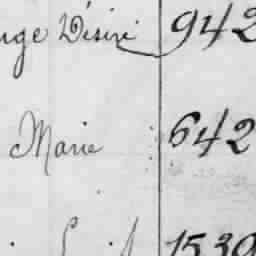 Désiré 942
Marie 642
1539